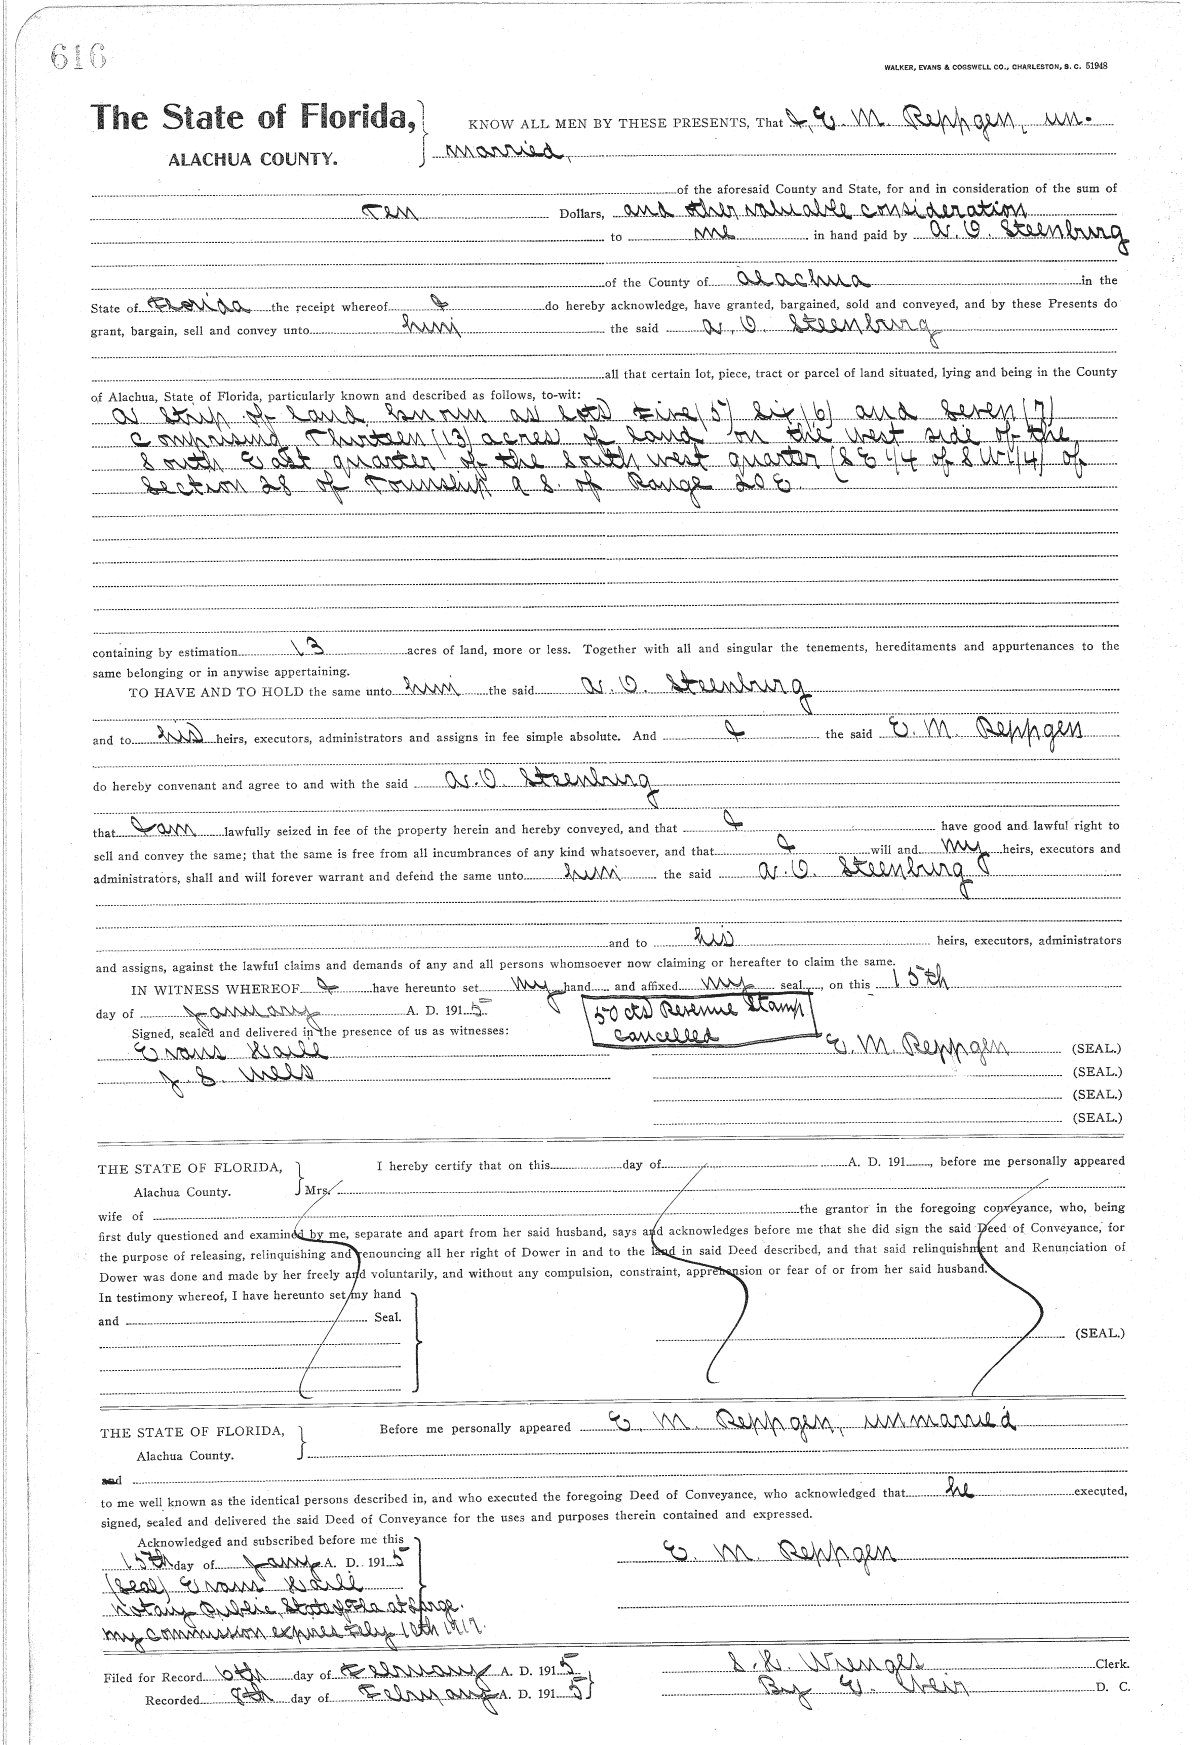 616
WALKER, EVANS & COGSWELL CO., CHARLESTON, S. C. 51948
The State of Florida, KNOW ALL MEN BY THESE PRESENTS, That I, E. M. Reppgen, un-
ALACHUA COUNTY. married,
of the aforesaid County and State, for and in consideration of the sum of
Ten Dollars, and other valuable consideration
to me in hand paid by A. O. Steenburg
of the County of Alachua in the
State of Florida the receipt whereof I do hereby acknowledge, have granted, bargained, sold and conveyed, and by these Presents do
grant, bargain, sell and convey unto him the said A. O. Steenburg
all that certain lot, piece, tract or parcel of land situated, lying and being in the County
of Alachua, State of Florida, particularly known and described as follows, to-wit:
A strip of land known as Lots Five (5) Six (6) and Seven (7)
comprising Thirteen (13) acres of land on the west side of the
South East quarter of the South west quarter (S E 1/4 of S W 1/4) of
Section 28 of Township 9 S. of Range 20 E.
containing by estimation 13 acres of land, more or less. Together with all and singular the tenements, hereditaments and appurtenances to the
same belonging or in anywise appertaining.
TO HAVE AND TO HOLD the same unto him the said A. O. Steenburg
and to his heirs, executors, administrators and assigns in fee simple absolute. And I the said E. M. Reppgen
do hereby convenant and agree to and with the said A. O. Steenburg
that I am lawfully seized in fee of the property herein and hereby conveyed, and that I have good and lawful right to
sell and convey the same; that the same is free from all incumbrances of any kind whatsoever, and that I will and my heirs, executors and
administrators, shall and will forever warrant and defend the same unto him the said A. O. Steenburg
and to his heirs, executors, administrators
and assigns, against the lawful claims and demands of any and all persons whomsoever now claiming or hereafter to claim the same.
IN WITNESS WHEREOF I have hereunto set my hand and affixed my seal, on this 15th
day of January A. D. 1915 50 cts Revenue Stamp
Signed, sealed and delivered in the presence of us as witnesses: cancelled
Evans Haile E. M. Reppgen (SEAL.)
J. S. (SEAL.)
(SEAL.)
(SEAL.)
THE STATE OF FLORIDA, I hereby certify that on this day of A. D. 191, before me personally appeared
Alachua County. Mrs.
wife of the grantor in the foregoing conveyance, who, being
first duly questioned and examined by me, separate and apart from her said husband, says and acknowledges before me that she did sign the said Deed of Conveyance, for
the purpose of releasing, relinquishing and renouncing all her right of Dower in and to the land in said Deed described, and that said relinquishment and Renunciation of
Dower was done and made by her freely and voluntarily, and without any compulsion, constraint, apprehension or fear of or from her said husband.
In testimony whereof, I have hereunto set my hand
and Seal.
(SEAL.)
THE STATE OF FLORIDA, Before me personally appeared E. M. Reppgen, unmarried
Alachua County.
and
to me well known as the identical persons described in, and who executed the foregoing Deed of Conveyance, who acknowledged that he executed,
signed, sealed and delivered the said Deed of Conveyance for the uses and purposes therein contained and expressed.
Acknowledged and subscribed before me this
15th day of Jany A. D. 1915 E. M. Reppgen
(Seal) Evans Haile
Notary Public, State of Fla at Large.
My commission expires Feby 10th 1917.
Filed for Record 6th day of February A. D. 1915 S. H. Wienges Clerk.
Recorded 8th day of February A. D. 1915 By E. Weir D. C.